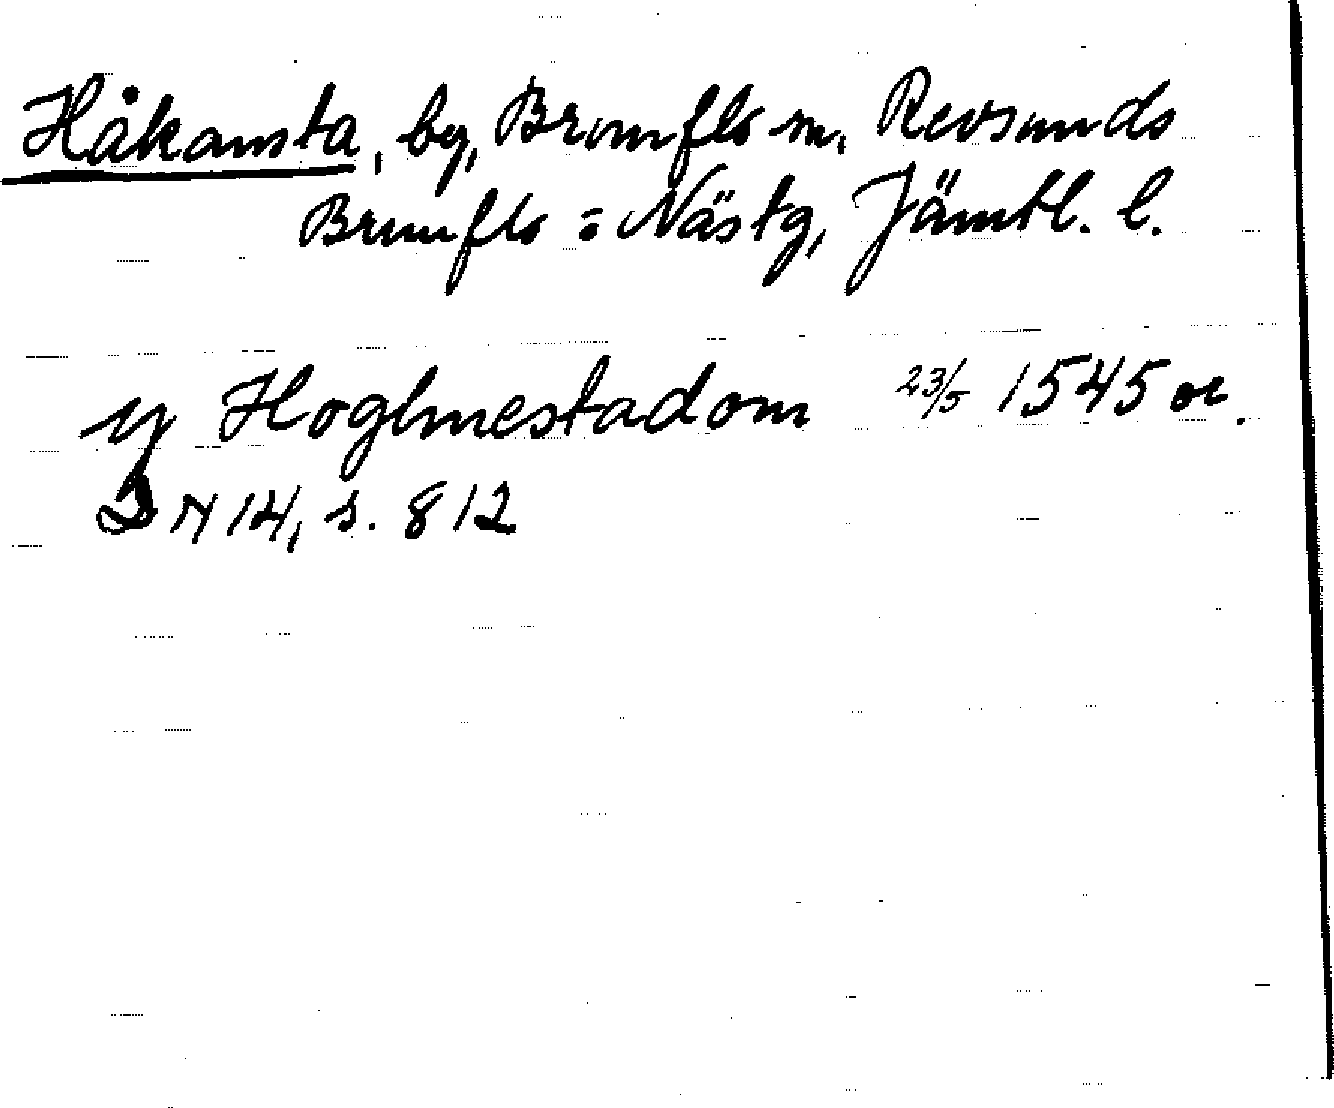 Håkansta, by, Brunflo sn, Revsunds
Brunflo o Nästg, Jämtl. l.
y Hoglmestadom 23/5 1545 or.
DN 14, s. 812